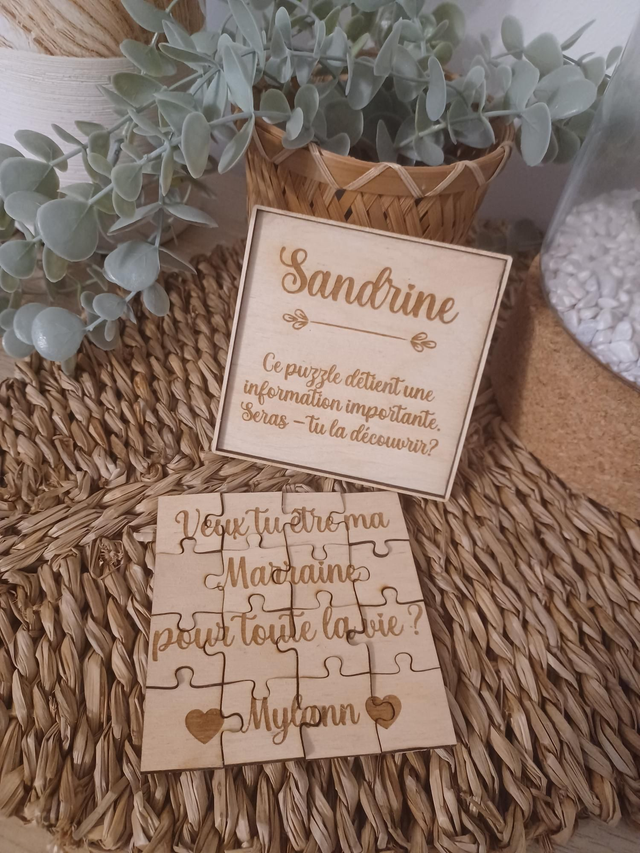 Sandrine
Ce puzzle détient une
information importante.
Seras - tu la découvrir?
Veux tu être ma
Marraine
pour toute la vie ?
Mylann